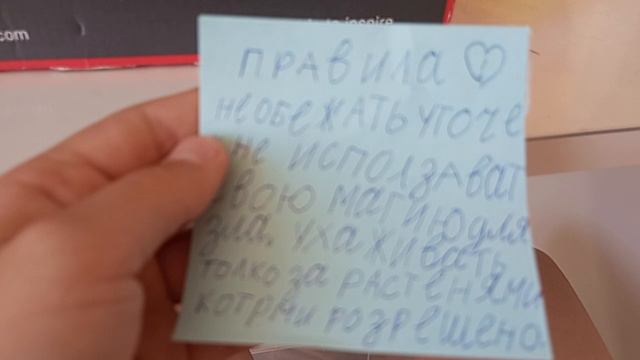 .com
ПРАВИЛА
НЕ ОБЕЖАТЬ УТОЧЕ
НЕ ИСПОЛЗАВАТ
СВОЮ МАГИЮ ДЛЯ
ЗЛА, УХАЖИВАТЬ
ТОЛКО ЗА РАСТЕНЯМИ
КОТРМИ РОЗРЕШЕНО